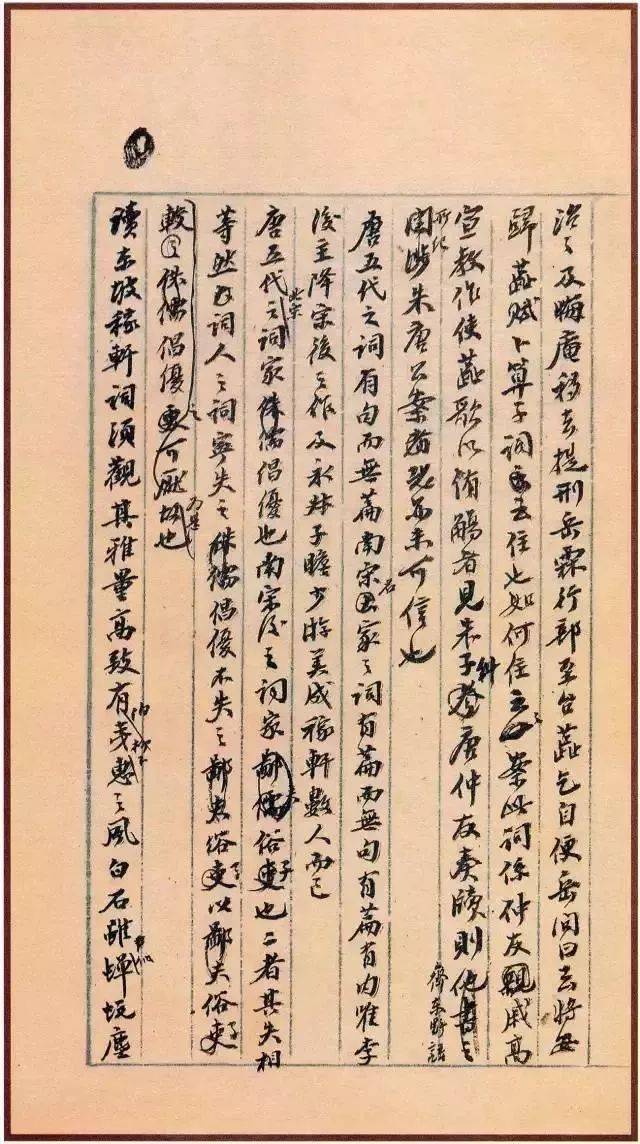 治之及晦庵移去提刑岳霖行部至台蕊乞自便岳問曰去將安
歸蕊賦卜算子詞云去住也如何住云云案此詞係仲友親戚高
宣教作使蕊歌以侑觴者見朱子糾唐仲友奏牘則齊東野語
所紀朱唐公案恐亦未可信也
唐五代之詞有句而無篇南宋名家之詞有篇而無句有篇有句唯李
後主降宋後之作及永叔子瞻少游美成稼軒數人而已
唐五代北宋之詞家倡優也南宋後之詞家俗子也二者其失相
等然詞人之詞寧失之倡優不失之俗子以俗子
之可厭較倡優為甚也
讀東坡稼軒詞須觀其雅量高致有伯夷柳下惠之風白石雖似蟬蛻塵